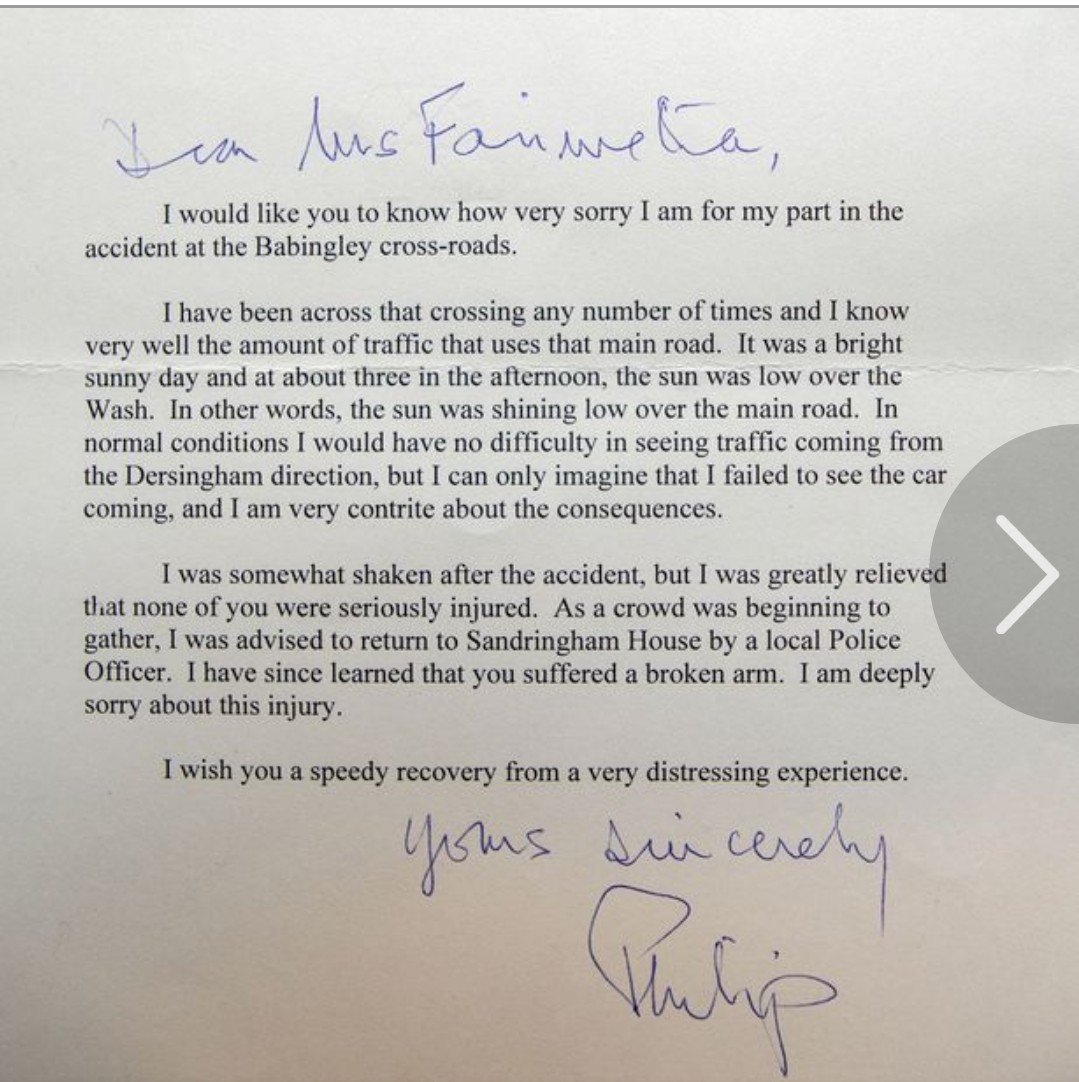 Dear Mrs Fairweather,
I would like you to know how very sorry I am for my part in the
accident at the Babingley cross-roads.
I have been across that crossing any number of times and I know
very well the amount of traffic that uses that main road. It was a bright
sunny day and at about three in the afternoon, the sun was low over the
Wash. In other words, the sun was shining low over the main road. In
normal conditions I would have no difficulty in seeing traffic coming from
the Dersingham direction, but I can only imagine that I failed to see the car
coming, and I am very contrite about the consequences.
I was somewhat shaken after the accident, but I was greatly relieved
that none of you were seriously injured. As a crowd was beginning to
gather, I was advised to return to Sandringham House by a local Police
Officer. I have since learned that you suffered a broken arm. I am deeply
sorry about this injury.
I wish you a speedy recovery from a very distressing experience.
Yours sincerely
Philip